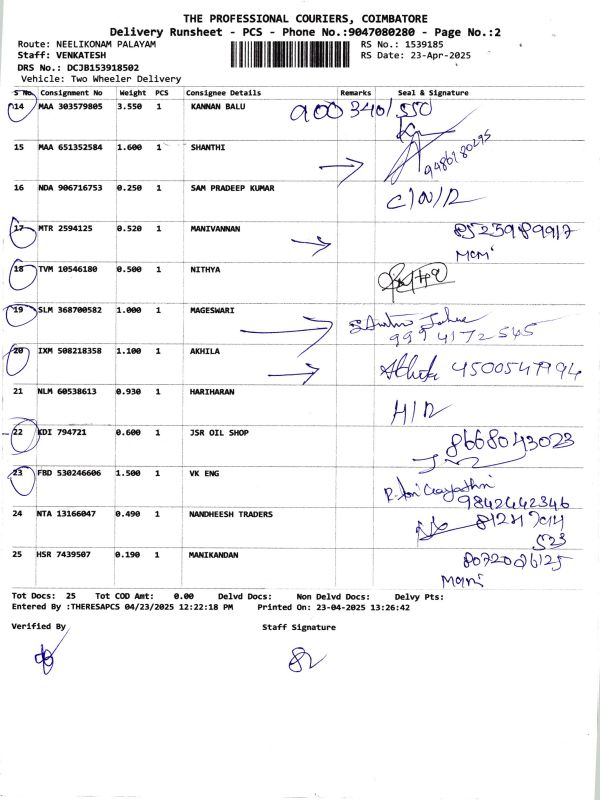 THE PROFESSIONAL COURIERS, COIMBATORE
Delivery Runsheet - PCS - Phone No.:9047080280 - Page No.:2
Route: NEELIKONAM PALAYAM RS No.: 1539185
Staff: VENKATESH RS Date: 23-Apr-2025
DRS No.: DCJB153918502
Vehicle: Two Wheeler Delivery
S No. Consignment No Weight PCS Consignee Details Remarks Seal & Signature
14 MAA 303579805 3.550 1 KANNAN BALU 900 340/550
15 MAA 651352584 1.600 1 SHANTHI
16 NDA 906716753 0.250 1 SAM PRADEEP KUMAR C/N/R
17 MTR 2594125 0.520 1 MANIVANNAN 8525989917
18 TVM 10546180 0.500 1 NITHYA
19 SLM 368700582 1.000 1 MAGESWARI
9994172545
20 IXM 508218358 1.100 1 AKHILA Akhila 4500547994
21 NLM 60538613 0.930 1 HARIHARAN
H/R
22 KDI 794721 0.600 1 JSR OIL SHOP 8668043023
23 FBD 530246606 1.500 1 VK ENG
9842442346
24 NTA 13166047 0.490 1 NANDHEESH TRADERS
523
25 HSR 7439507 0.190 1 MANIKANDAN 8072026125
Tot Docs: 25 Tot COD Amt: 0.00 Delvd Docs: Non Delvd Docs: Delvy Pts:
Entered By :THERESAPCS 04/23/2025 12:22:18 PM Printed On: 23-04-2025 13:26:42
Verified By Staff Signature